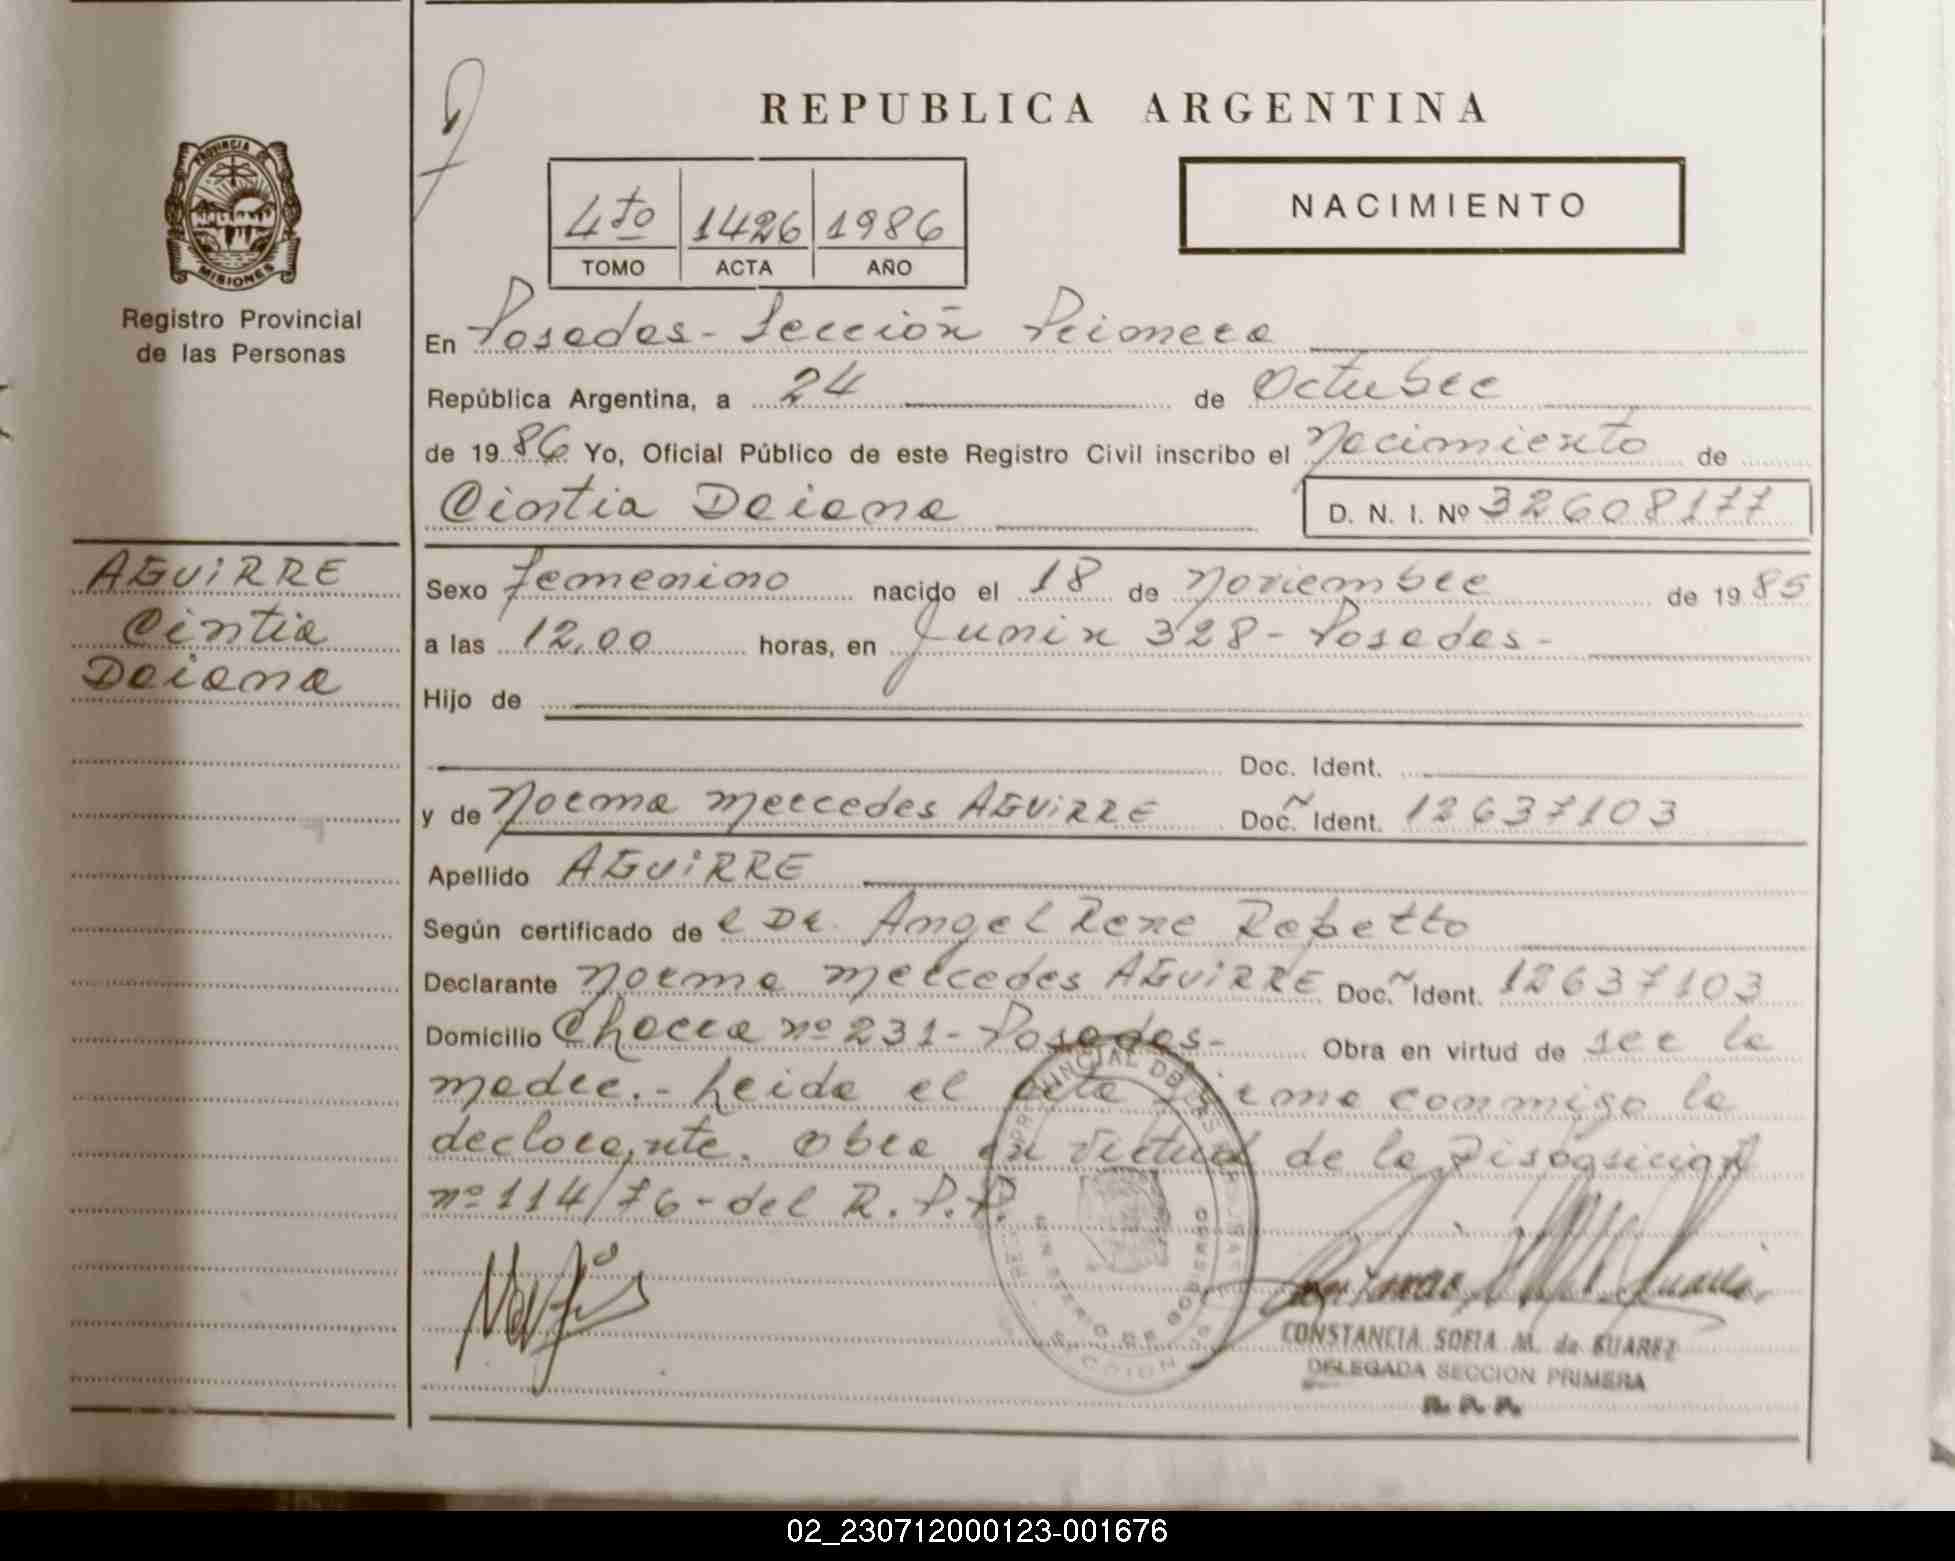 REPUBLICA ARGENTINA
PROVINCIA DE MISIONES
Registro Provincial
de las Personas
4to 1426 1986
TOMO ACTA AÑO
NACIMIENTO
En Posadas - Sección Primera
República Argentina, a 24 de Octubre
de 1986 Yo, Oficial Público de este Registro Civil inscribo el Nacimiento de
Cintia Daiana D. N. I. Nº 32608177
AGUiRRE
Cintia
Daiana
Sexo femenino nacido el 18 de Noviembre de 1985
a las 12,00 horas, en Junín 328 - Posadas -
Hijo de
Doc. Ident.
y de Norma Mercedes AGUiRRE Doc. Ident. 12637103
Apellido AGUiRRE
Según certificado de el Dr. Angel Rene Repetto
Declarante Norma Mercedes AGUiRRE Doc. Ident. 12637103
Domicilio Chacra nº 231 - Posadas - Obra en virtud de ser la
madre. - Leida el acta firma conmigo la
declarante. Obra en virtud de la Disposición
nº 114/76 - del R. P. P.
CONSTANCIA SOFIA M. de SUAREZ
DELEGADA SECCION PRIMERA
R. P. P.
02_230712000123-001676